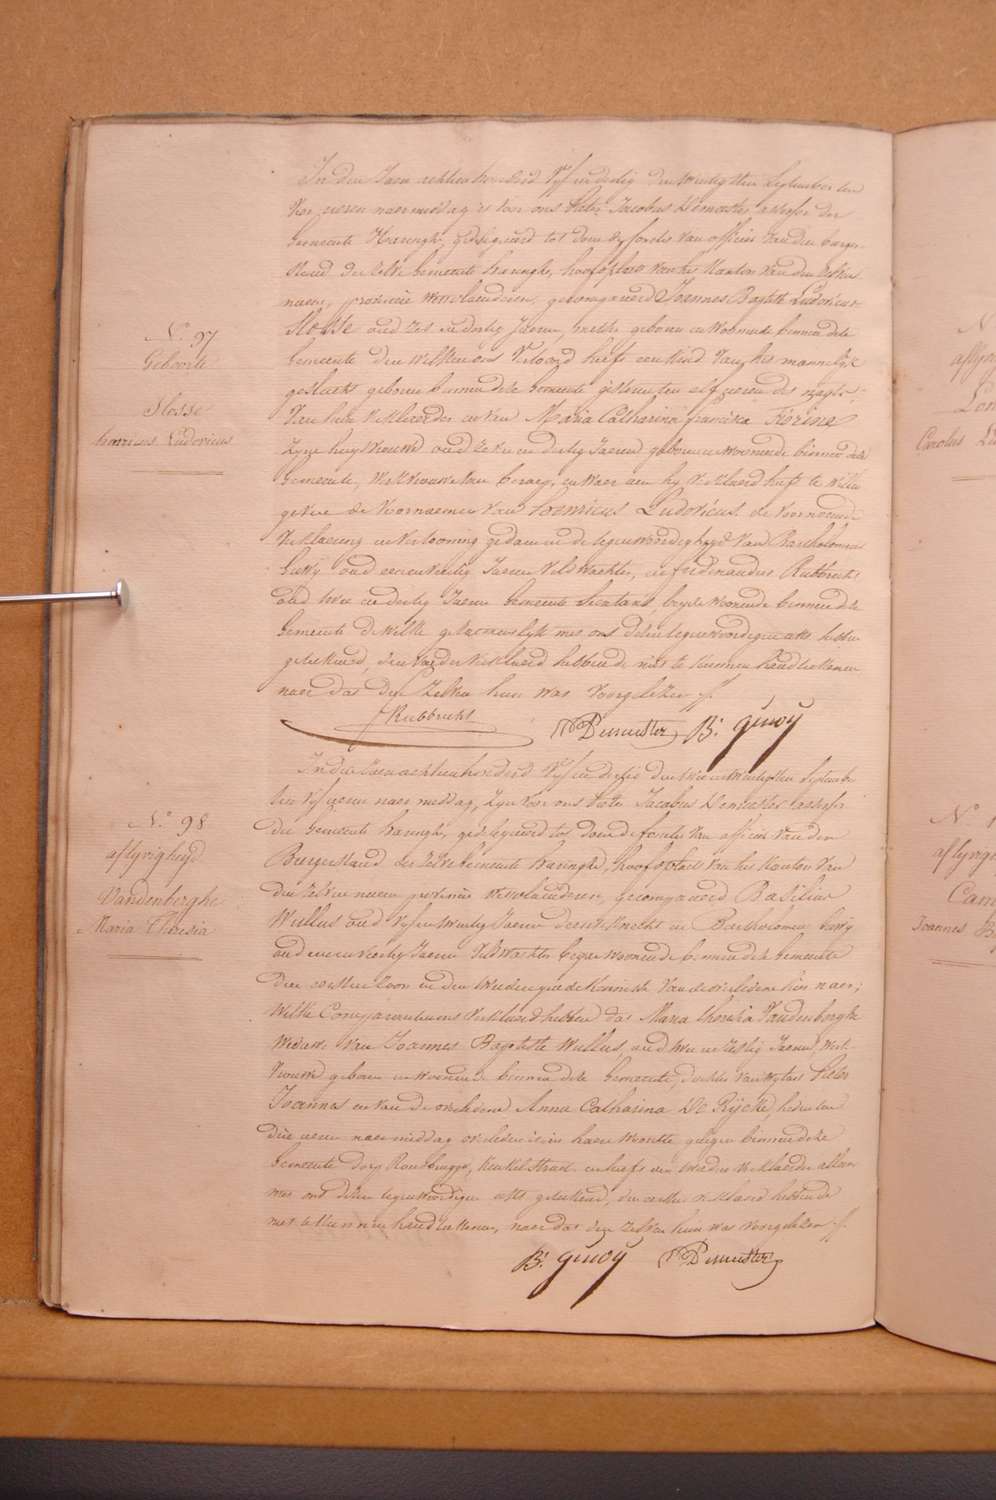 N.° 97
Geboorte
Slosse
henricus Ludovicus
In den Jaere achtien honderd Vyf en dertig den twintigsten September ten
Vier ueren naer middag is voor ons Pieter Jacobus Demeester assessor der
Gemeente Haringhe, gedelegueerd tot doen de fonctie van officier van den burger-
stand der zelve Gemeente haringhe, hoofdplaets van het Kanton van den zelven
naem, provincie Westvlaenderen, gecompareerd Joannes Baptiste Ludovicus
Slosse oud zes en dertig Jaeren, geboren en woonende binnen deze
Gemeente den welken ons vertoogd heeft een kind van het mannelyk
geslacht geboren binnen deze Gemeente gisteren ten elf ueren des
Van hem Verklaerder en van Maria Catharina francisca Fiorine
zyne huysvrouwe oud zeven en dertig Jaeren geboren en woonende binnen deze
Gemeente, van beroep, en waer aen hy verklaerd heeft te willen
geven de Voornaemen van henricus Ludovicus de voornoemde
Verklaering en vertooning gedaen in de tegenwoordigheyd van Bartholomeus
Guwy oud een en veertig Jaeren Veldwachter, en ferdinandus Rubbrecht
oud twee en dertig Jaeren Gemeente Secretaris, beyde woonende binnen deze
Gemeente de welke gelaemenlyk met ons dezen tegenwoordigen acte hebben
geteekend, den vader verklaerd hebbende niet te kunnen handteekenen
naer dat dezen zelven hun was voorgelezen
f Rubbrecht
PJ Demeester B: guwÿ
N.° 98
aflyvigheyd
Vandenberghe
Maria Theresia
In den Jaere achtien honderd Vyf en dertig den twintigsten September
ten Vyf ueren naer middag, zyn voor ons Pieter Jacobus Demeester assessor
der Gemeente haringhe, gedelegueerd tot doen de fonctie van officier van den
Burgerstand der zelve Gemeente haringhe, hoofdplaets van het Kanton van
den zelven naem provincie Westvlaenderen, gecompareerd Basilius
Wullus oud vyf en twintig Jaeren dienstknecht en Bartholomeus Guwy
oud een en veertig Jaeren Veldwachter beyde woonende binnen deze Gemeente
den eersten Zoon en den tweeden goede Kennisse van de overledene hier naer;
Welke Comparanten ons verklaerd hebben dat Maria theresia Vandenberghe
Weduwe van Joannes Baptiste Wullus oud twee en zestig Jaeren, werk-
Vrouwe geboren en woonende binnen deze Gemeente, dochter van wylent Pieter
Joannes en van de overledene Anna Catharina De Rÿcke, heden ten
drie ueren naer middag overleden is in haere wooning gelegen binnen deze
Gemeente dorp Rousbrugge, straet en heeft den tweeden verklaerder alleen
met ons dezen tegenwoordigen acte geteekend, den eersten verklaerd hebbende
niet te kunnen handteekenen, naer dat dezen zelven hun was voorgelezen
B: guwÿ PJ Demeester
N
aflyvig
Lon
Carolus Lu
N.° 1
aflyvig
Cam
Joannes B